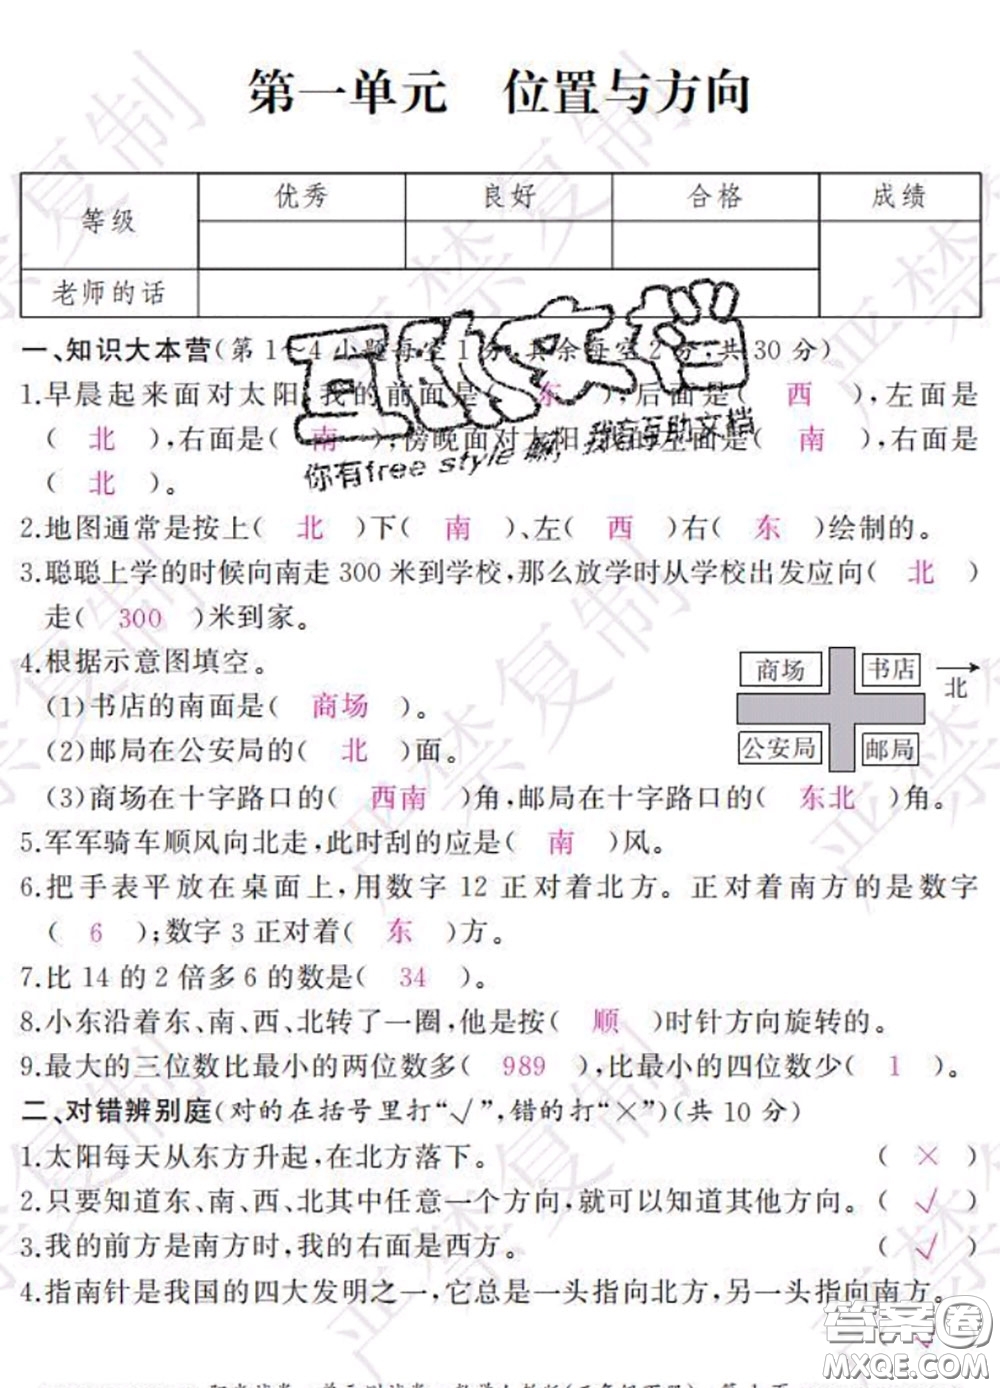 第一单元 位置与方向
等级 优秀 良好 合格 成绩
老师的话
一、知识大本营(第1~4小题每空1分,其余每空2分,共30分)
1.早晨起来面对太阳,我的前面是( 东 ),后面是( 西 ),左面是
( 北 ),右面是( 南 );傍晚面对太阳,我的左面是( 南 ),右面是
( 北 )。
2.地图通常是按上( 北 )下( 南 )、左( 西 )右( 东 )绘制的。
3.聪聪上学的时候向南走300米到学校,那么放学时从学校出发应向( 北 )
走( 300 )米到家。
4.根据示意图填空。
(1)书店的南面是( 商场 )。
(2)邮局在公安局的( 北 )面。
(3)商场在十字路口的( 西南 )角,邮局在十字路口的( 东北 )角。
商场 书店 北
公安局 邮局
5.军军骑车顺风向北走,此时刮的应是( 南 )风。
6.把手表平放在桌面上,用数字12正对着北方。正对着南方的是数字
( 6 );数字3正对着( 东 )方。
7.比14的2倍多6的数是( 34 )。
8.小东沿着东、南、西、北转了一圈,他是按( 顺 )时针方向旋转的。
9.最大的三位数比最小的两位数多( 989 ),比最小的四位数少( 1 )。
二、对错辨别庭(对的在括号里打“√”,错的打“×”)(共10分)
1.太阳每天从东方升起,在北方落下。 ( × )
2.只要知道东、南、西、北其中任意一个方向,就可以知道其他方向。( √ )
3.我的前方是南方时,我的右面是西方。 ( √ )
4.指南针是我国的四大发明之一,它总是一头指向北方,另一头指向南方。
( √ )
互助文档
你有free style嘛,我有互助文档
严禁复制
答案圈
MXQE.COM